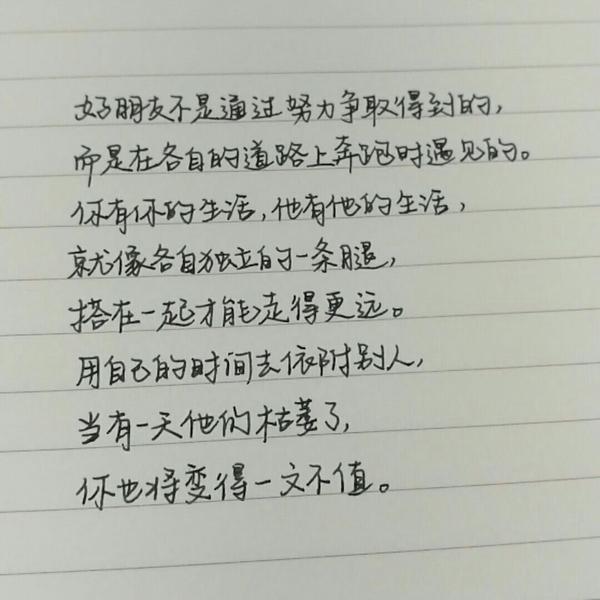 好朋友不是通过努力争取得到的,
而是在各自的道路上奔跑时遇见的。
你有你的生活,他有他的生活,
就像各自独立的一条腿,
搭在一起才能走得更远。
用自己的时间去依附别人,
当有一天他们枯萎了,
你也将变得一文不值。